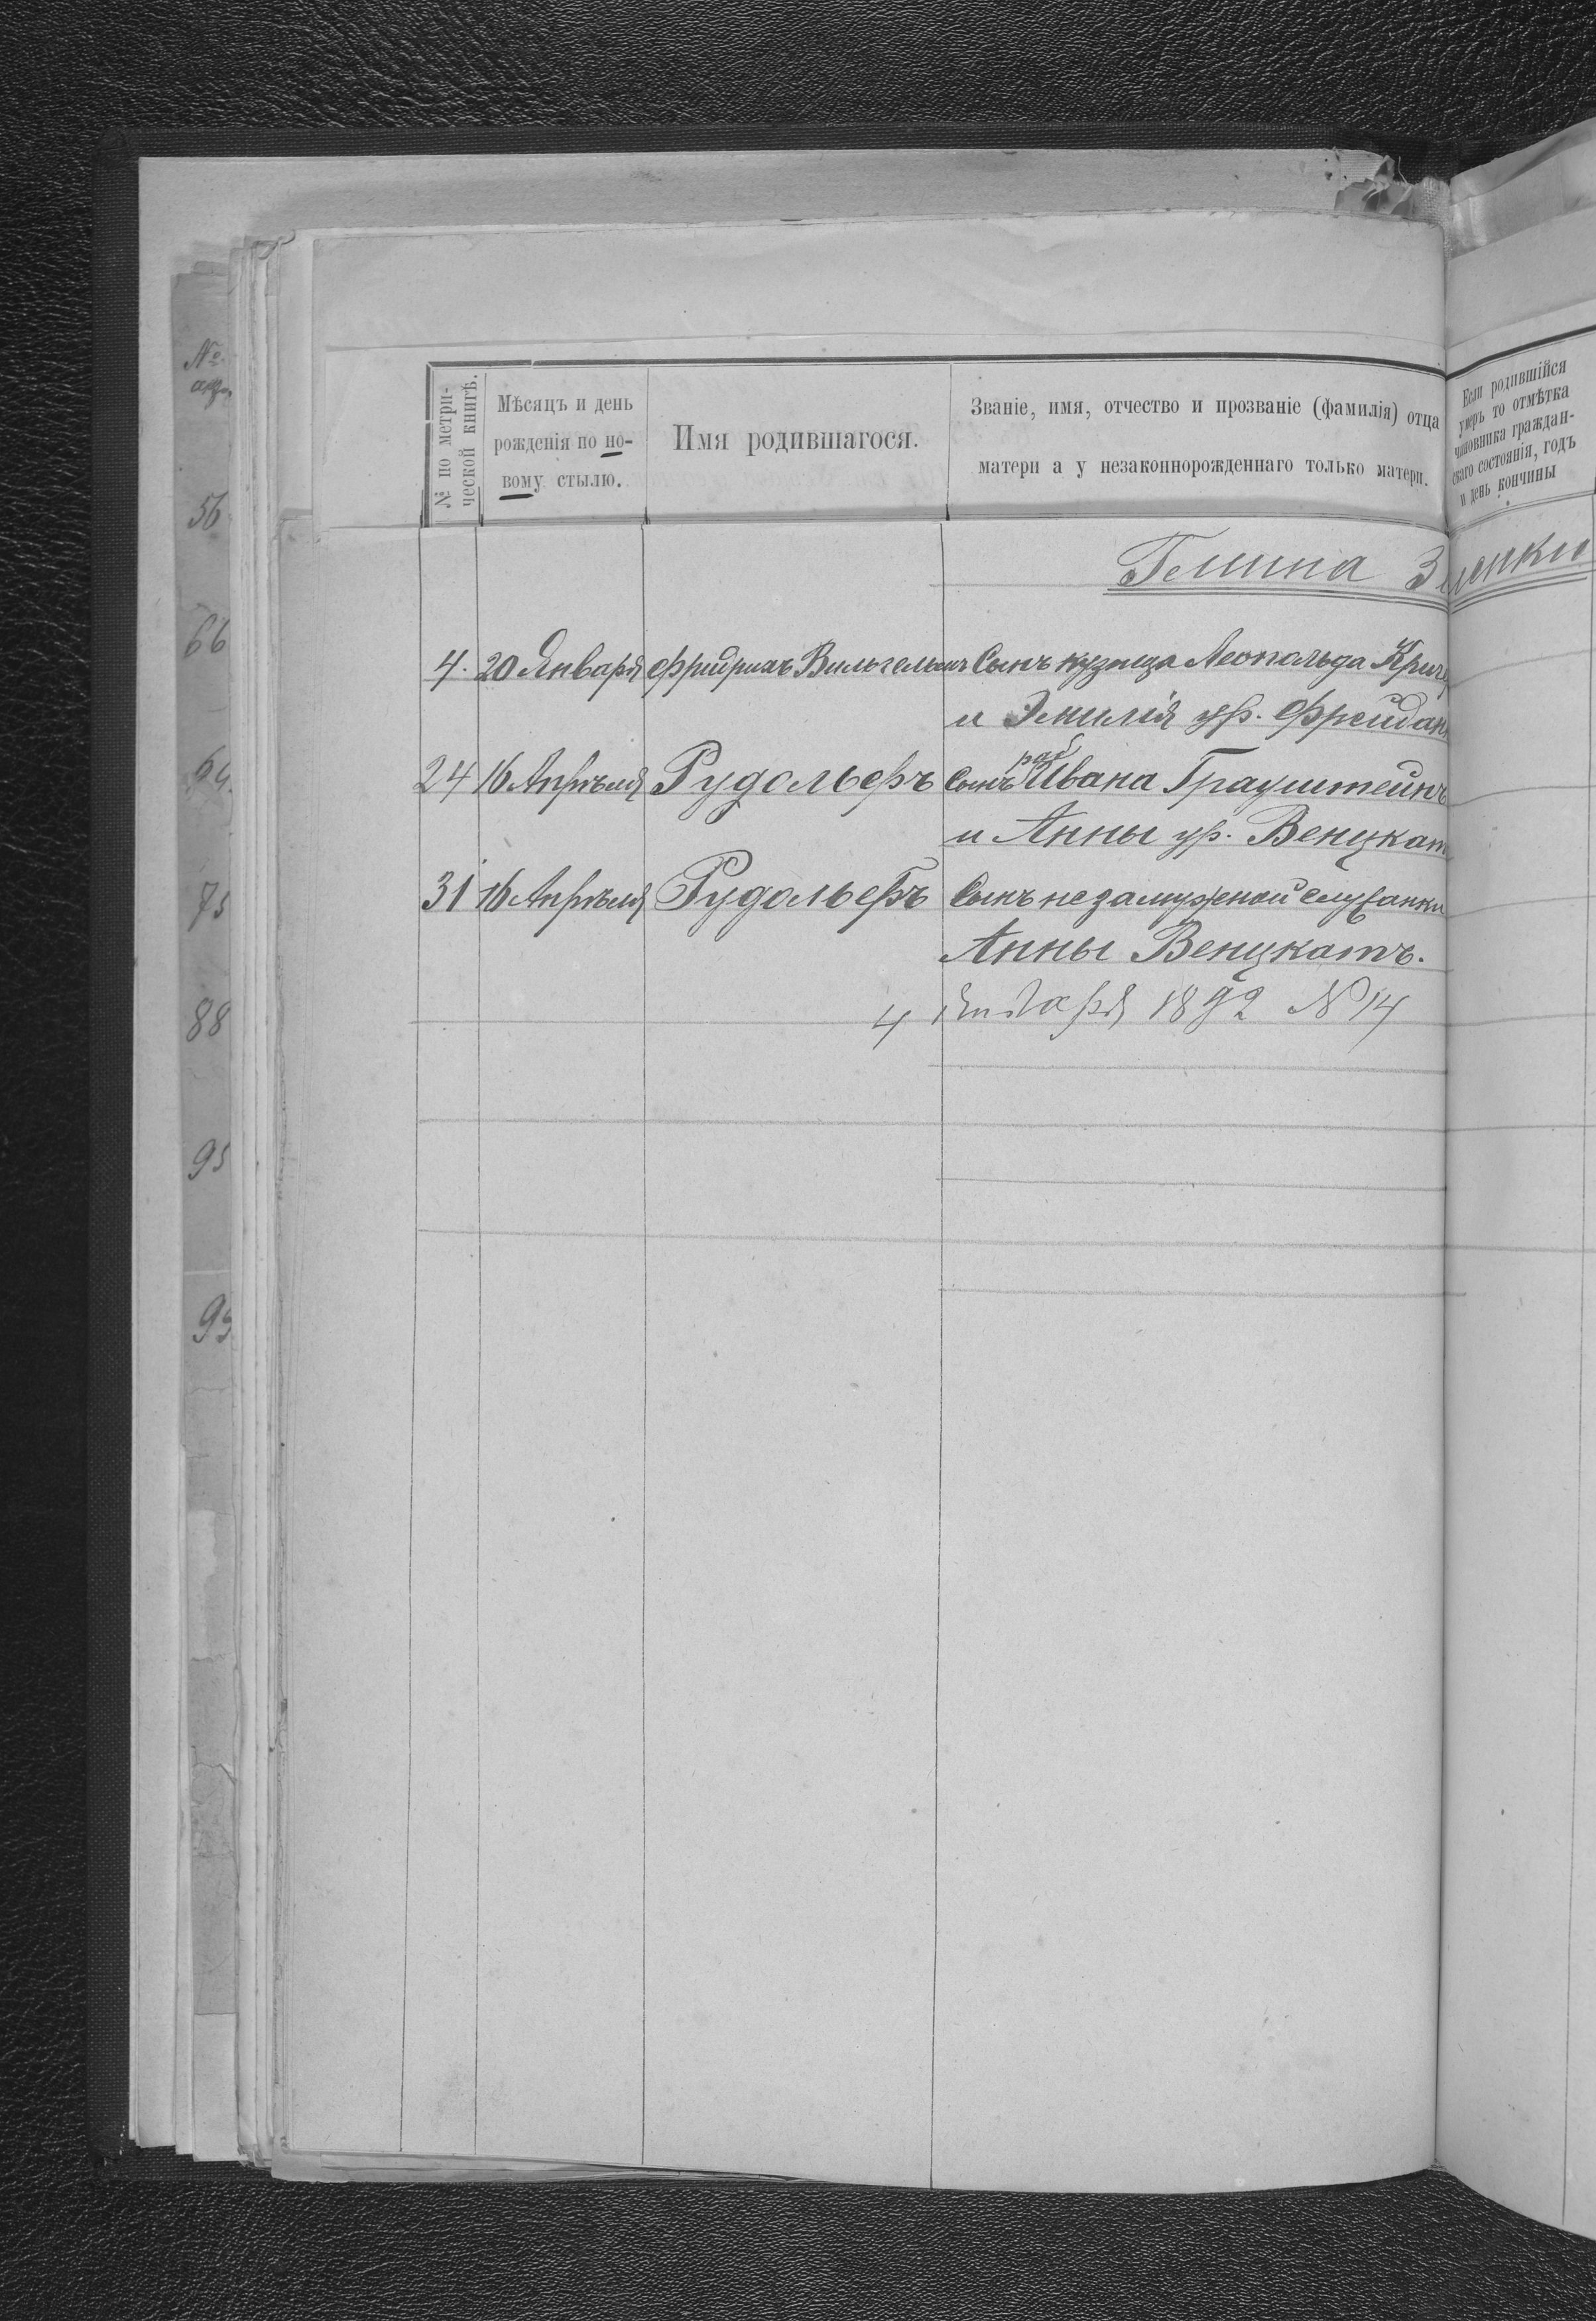 №
56
66
64.
75
88
95
99
№ по метри-
ческой книгѣ.
Мѣсяцъ и день
рожденія по но-
вому стылю.
Имя родившагося.
Званіе, имя, отчество и прозваніе (фамилія) отца
матери а у незаконнорожденнаго только матери.
Если родившійся
умеръ то отмѣтка
чиновника граждан-
скаго состоянія, годъ
и день кончины
Гмина Зеленки
4. 20 Января Фридрихъ Вильгельмъ Сынъ кузнеца Леопольда
и Эмилія ур. Фрейдан
24 16 Апрѣля Рудольфъ Сынъ раб Ивана Грауштейнъ
и Анны ур. Венцкат
31 16 Апрѣля Рудольфъ Сынъ незамужной служанки
Анны Венцкатъ.
4 Января 1892 № 14